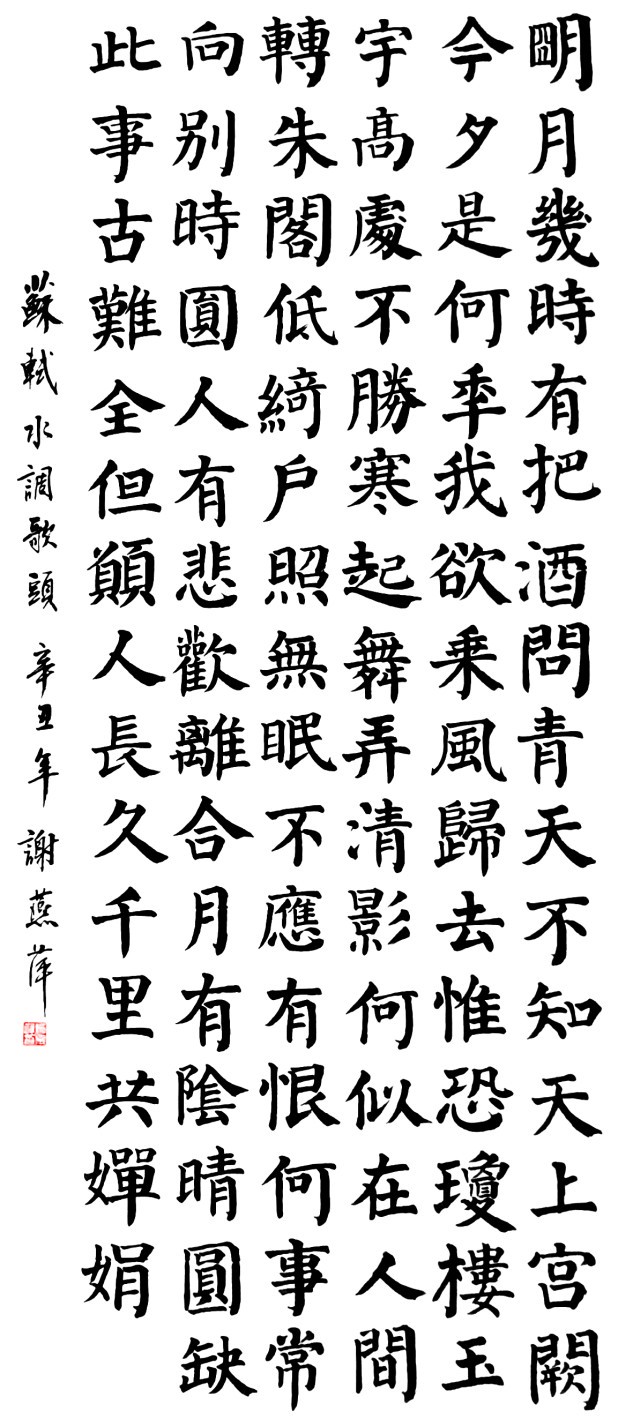 明月幾時有把酒問青天不知天上宫闕
今夕是何年我欲乘風歸去惟恐瓊樓玉
宇高處不勝寒起舞弄清影何似在人間
轉朱閣低綺户照無眠不應有恨何事常
向别時圓人有悲歡離合月有陰晴圓缺
此事古難全但願人長久千里共嬋娟
蘇軾水調歌頭 辛丑年 謝燕萍